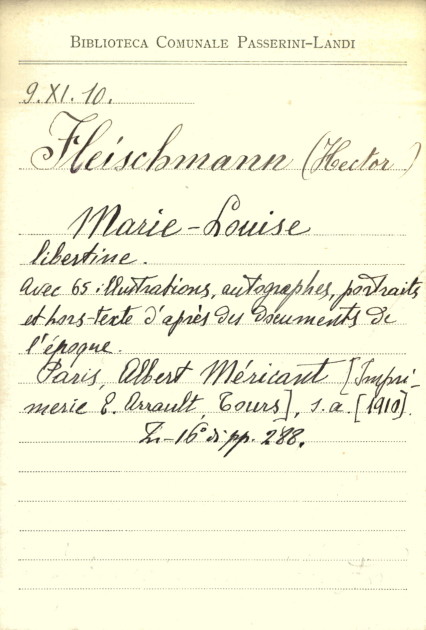 BIBLIOTECA COMUNALE PASSERINI-LANDI
9.XI.10.
Fleischmann (Hector)
Marie-Louise
libertine.
Avec 65 illustrations, autographes, portraits
et hors-texte d'après des documents de
l'époque.
Paris, Albert Méricant [Impri-
merie E. Arrault, Tours], s.a. [1910].
In-16° di pp. 288.